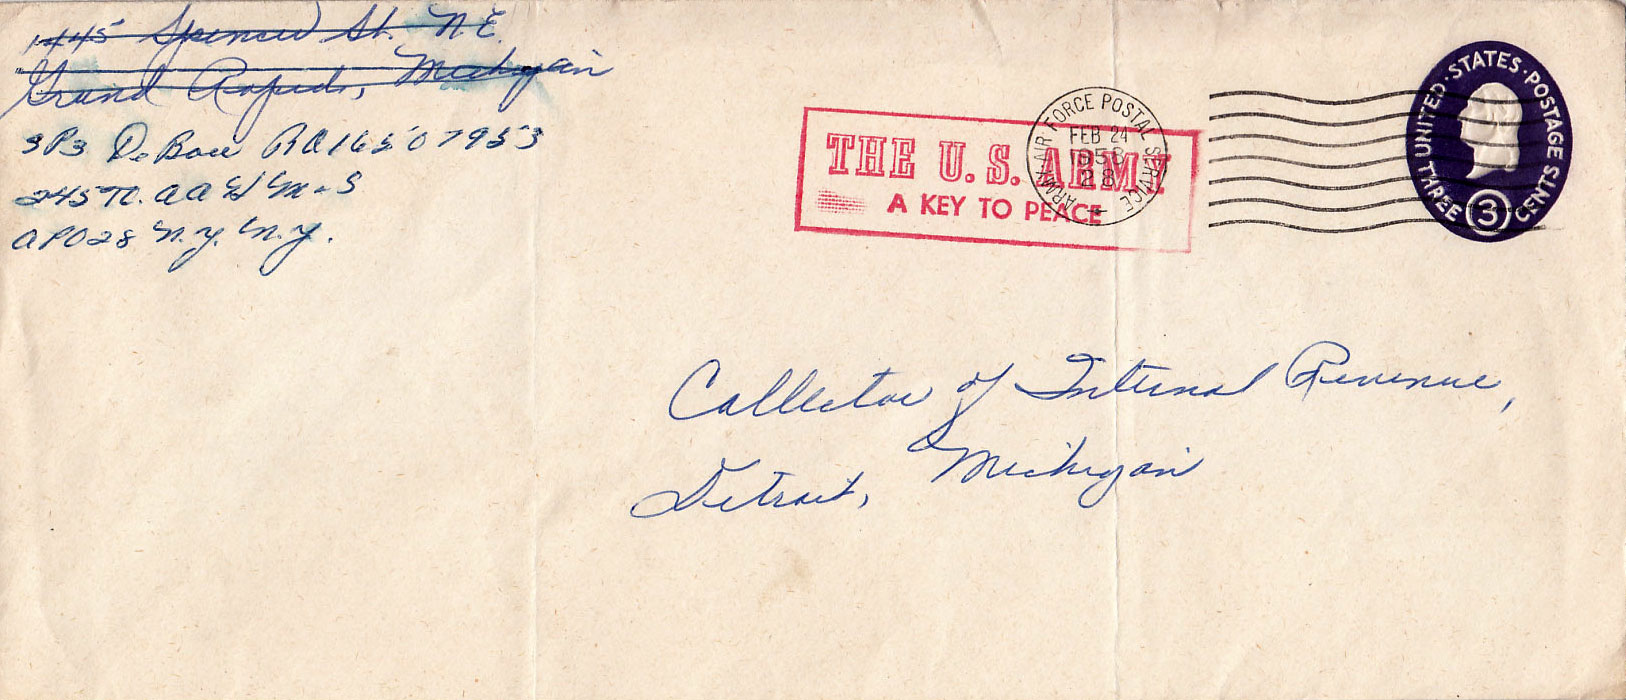 1445 Spencer St. N.E.
Grand Rapids, Michigan
SP3 DeBoer RA16507953
245 Tk.
APO 28 N.Y. N.Y.
THE U.S. ARMY
A KEY TO PEACE
ARMY-AIR FORCE POSTAL SERVICE
FEB 24
1956
28
UNITED·STATES·POSTAGE
THREE 3 CENTS
Collector of Internal Revenue,
Detroit, Michigan